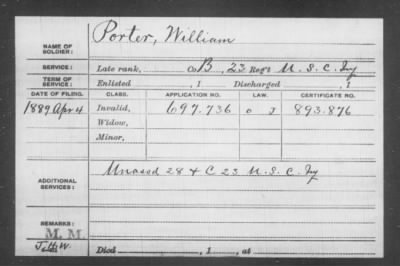 NAME OF SOLDIER: Porter, William
SERVICE: Late rank, Co B, 23 Reg't U. S. C. Inf
TERM OF SERVICE: Enlisted , 1 Discharged , 1
DATE OF FILING. CLASS. APPLICATION NO. LAW. CERTIFICATE NO.
1889 Apr 4 Invalid, 697.736 893.876
Widow,
Minor,
ADDITIONAL SERVICES: Unassd 28 & C 23 U. S. C. Inf
REMARKS:
M. M.
Died , 1 , at